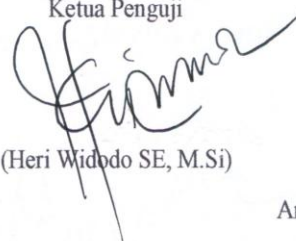 Ketua Penguji
(Heri Widodo SE, M.Si)